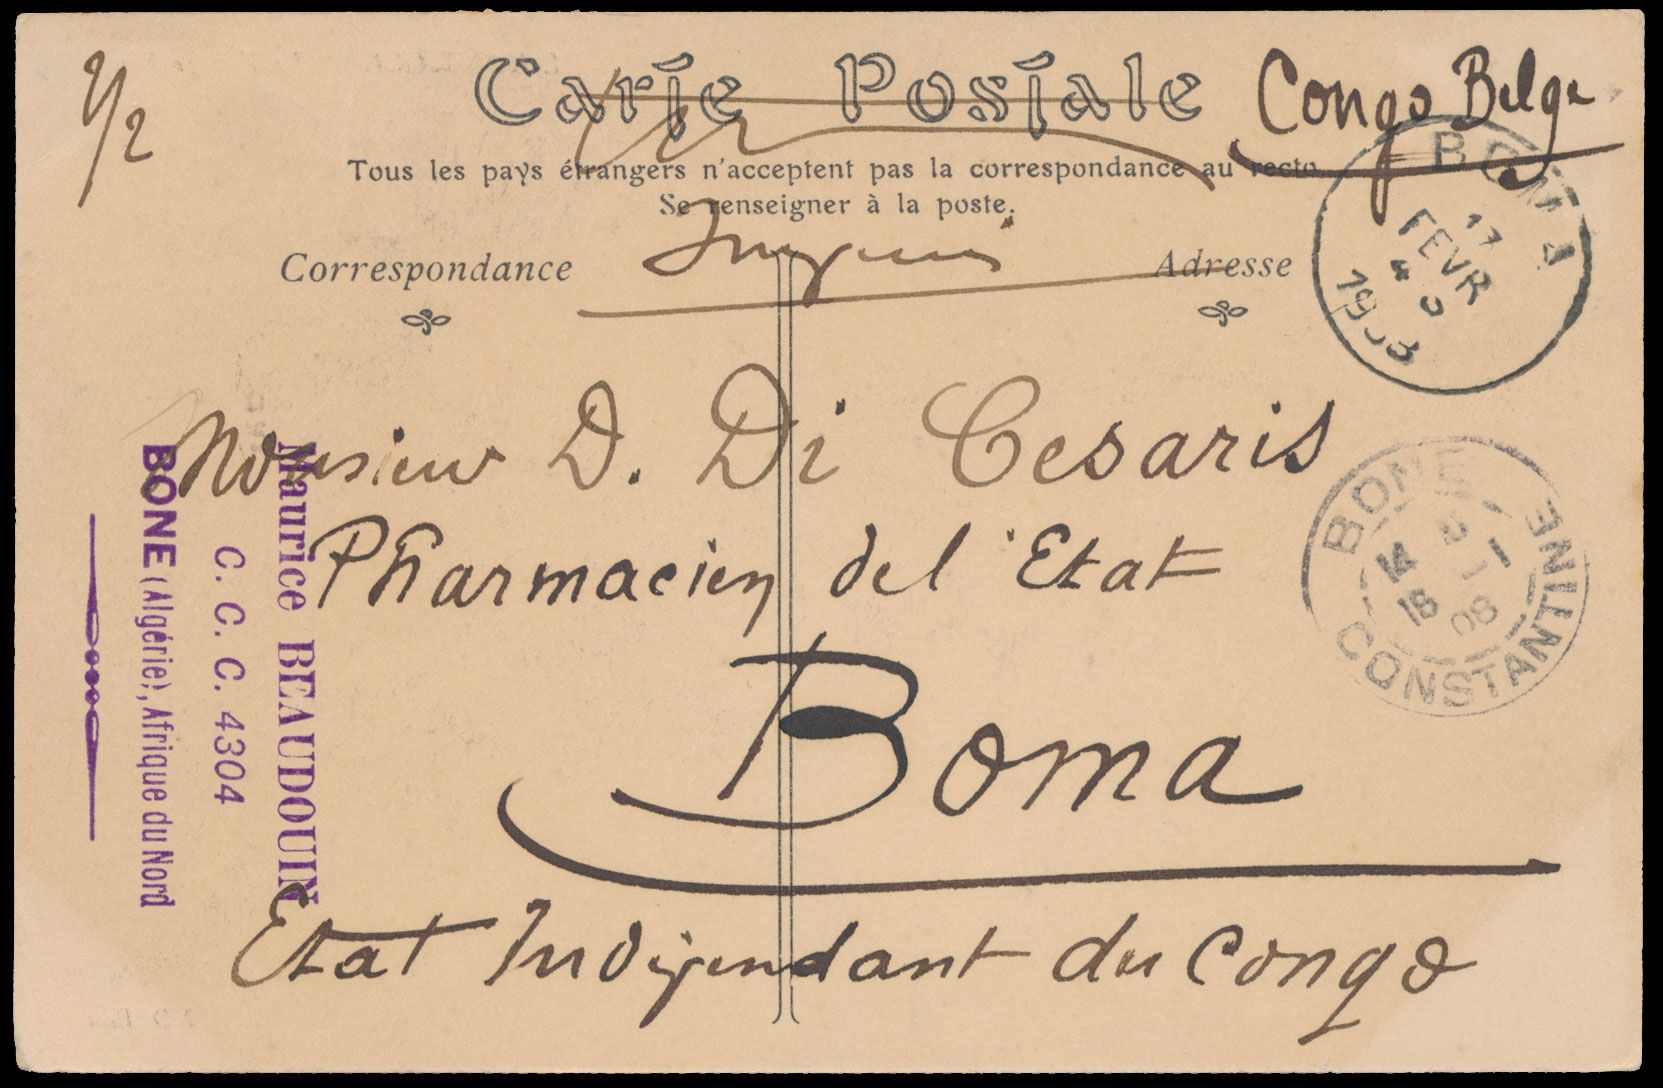 Carte Postale
Congo Belge
Tous les pays étrangers n'acceptent pas la correspondance au recto
Se renseigner à la poste.
Correspondance
Adresse
BOMA
17
FEVR
1908
Monsieur D. Di Cesaris
Pharmacien de l'Etat
Boma
Etat Indépendant du Congo
BONE
14 5
18 08
CONSTANTINE
Maurice BEAUDOUIN
C. C. C. 4304
BONE (Algérie), Afrique du Nord